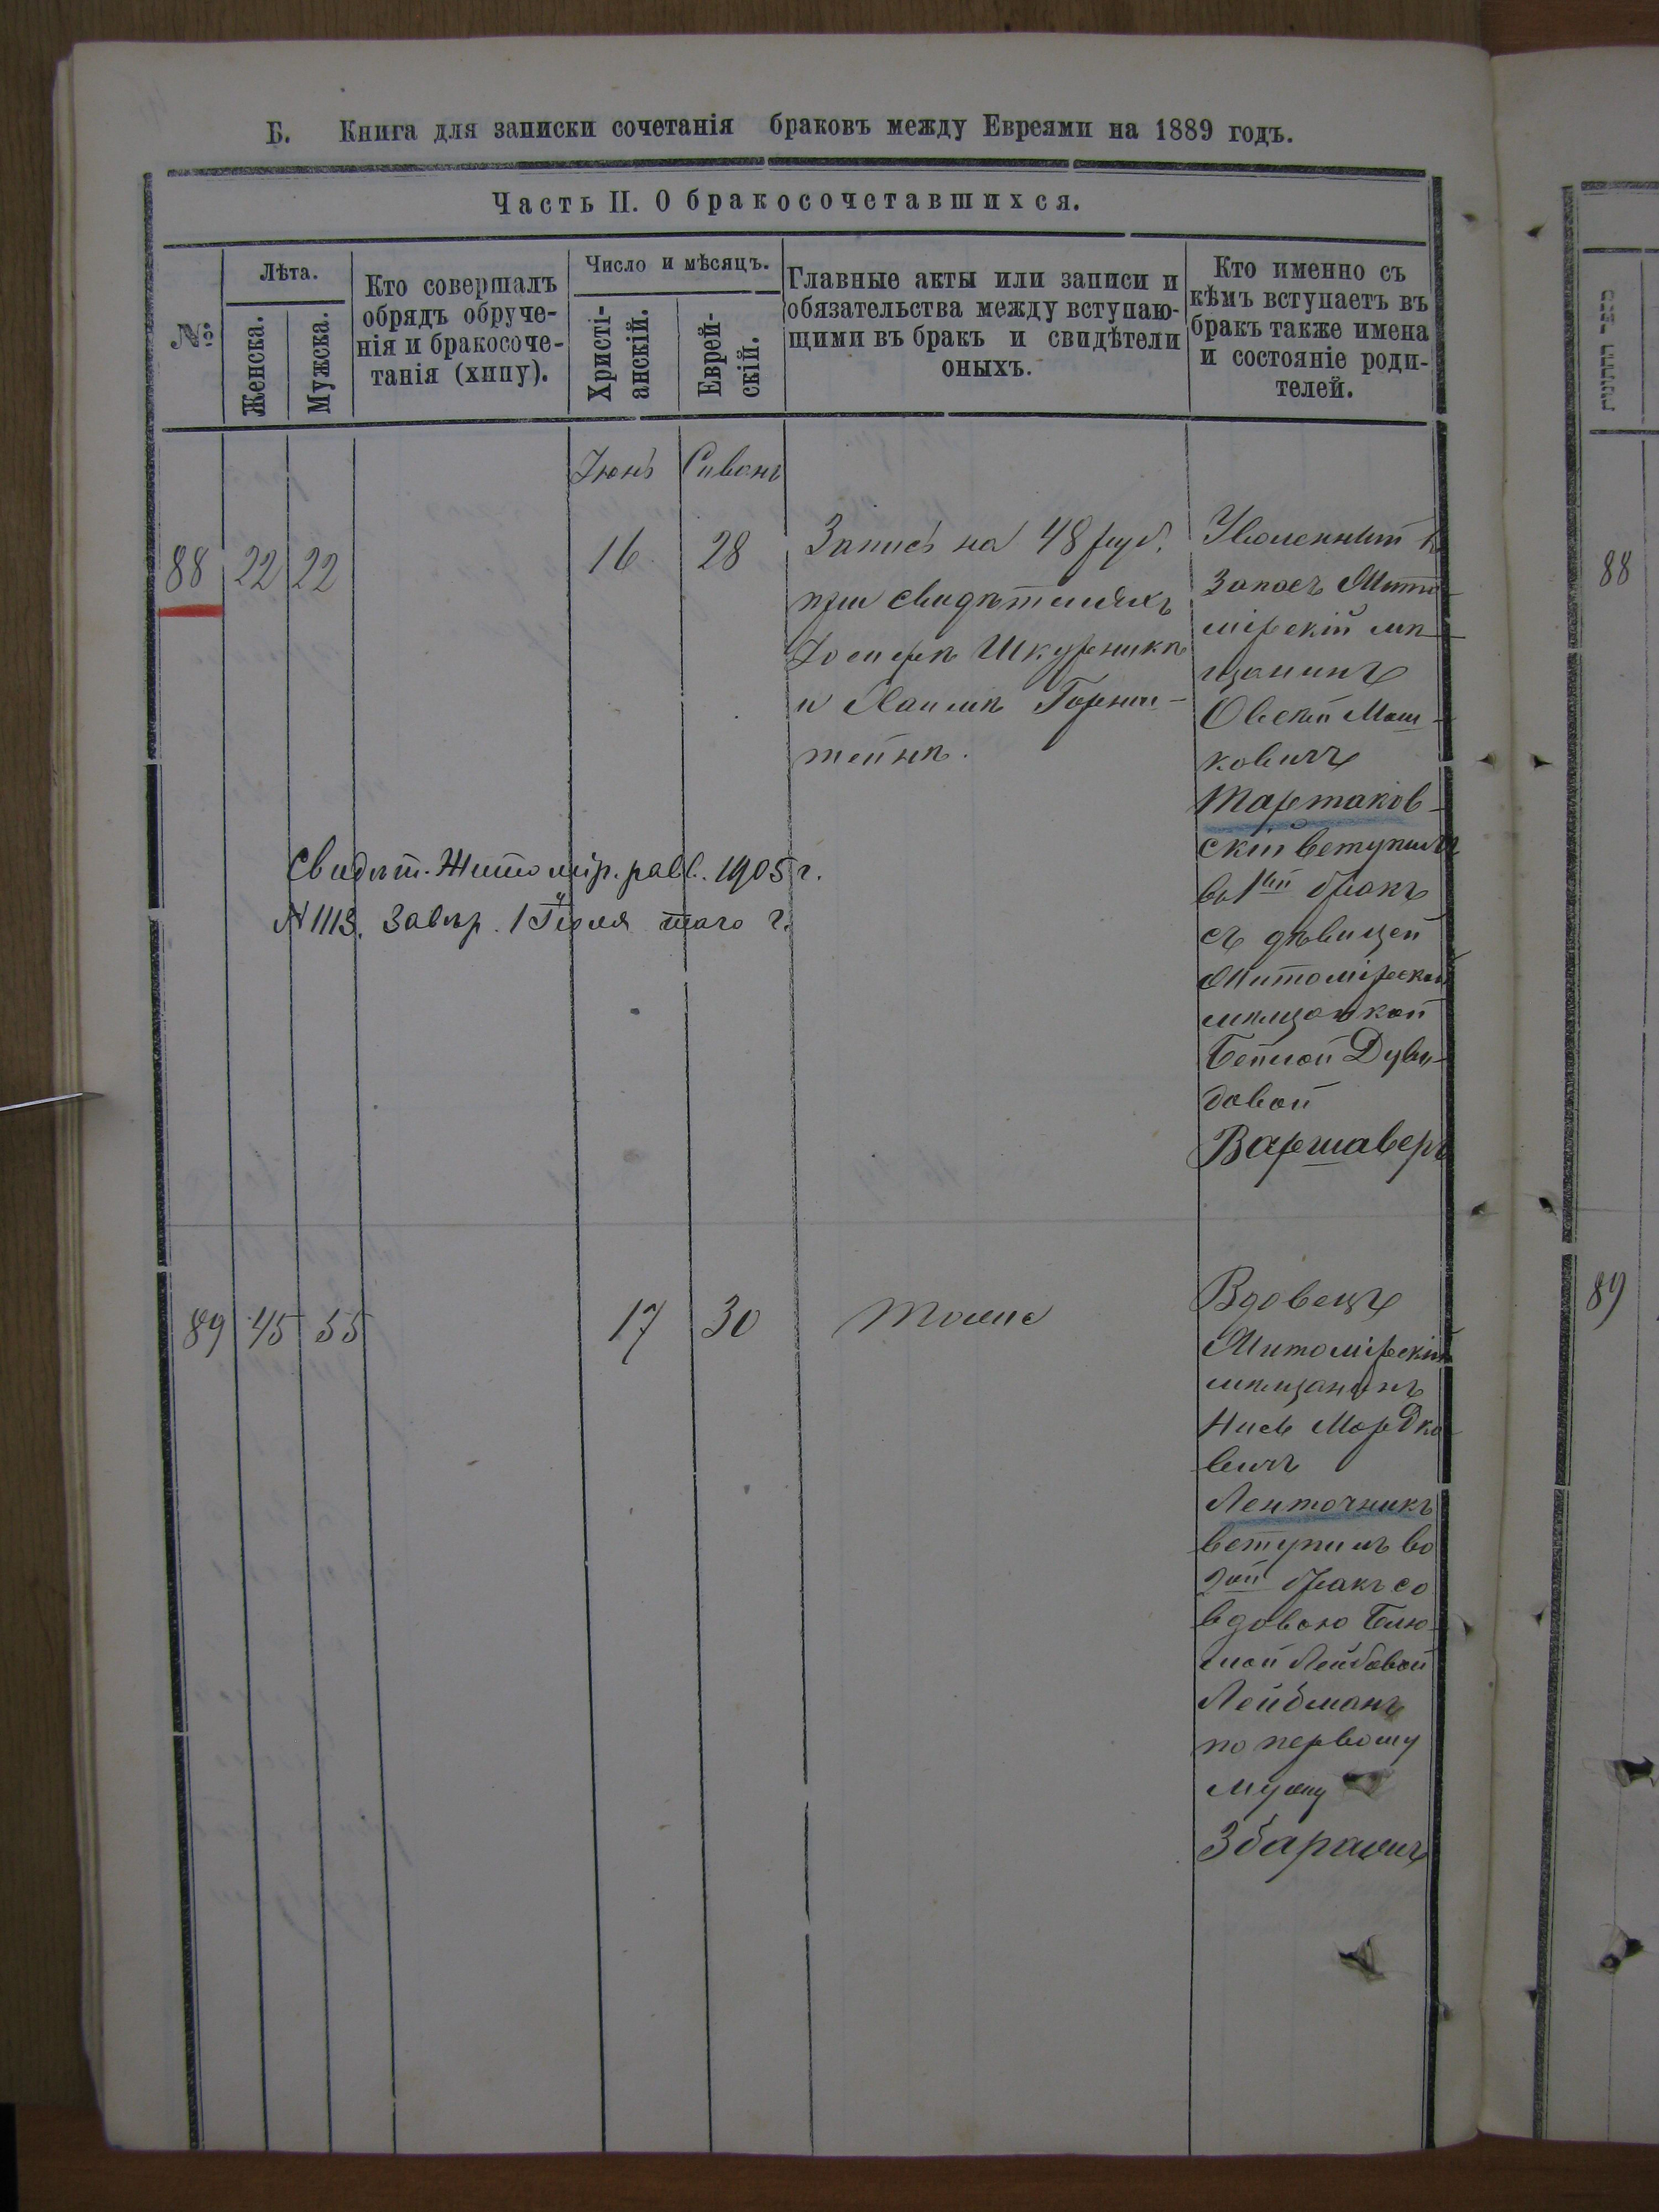 Б. Книга для записки сочетанія браковъ между Евреями на 1889 годъ.
Часть II. О бракосочетавшихся.
№
Лѣта.
Женска.
Мужска.
Кто совершалъ
обрядъ обруче-
нія и бракосоче-
танія (хипу).
Число и мѣсяцъ.
Христі-
анскій.
Еврей-
скій.
Главные акты или записи и
обязательства между вступаю-
щими въ бракъ и свидѣтели
оныхъ.
Кто именно съ
кѣмъ вступаетъ въ
бракъ также имена
и состояніе роди-
телей.
Іюнь
Сиванъ
88
22
22
16
28
Запись на 48 руб.
при свидѣтеляхъ
Іосифѣ Шкурникѣ
и Хаимѣ Горнш-
тейнѣ.
Уволенный в
запасъ Жито-
мірскій мѣ-
щанинъ
Овсей Мош-
ковичъ
Тартаков-
скій вступилъ
въ 1ый бракъ
съ дѣвицей
Житомірской
мѣщанкой
Бейлой Дуви-
довой
Варшаверъ
Свидѣт. Житомір. равв. 1905 г.
N 1113. Завѣр. 1 Іюля того г.
89
45
55
17
30
Тоже
Вдовецъ
Житомірскій
мѣщанинъ
Нисъ Мордко-
вичъ
Ленточникъ
вступилъ во
2ой бракъ со
вдовою Блю-
мой Лейбовой
Лейбманъ
по первому
мужу
Збаражъ
88
89